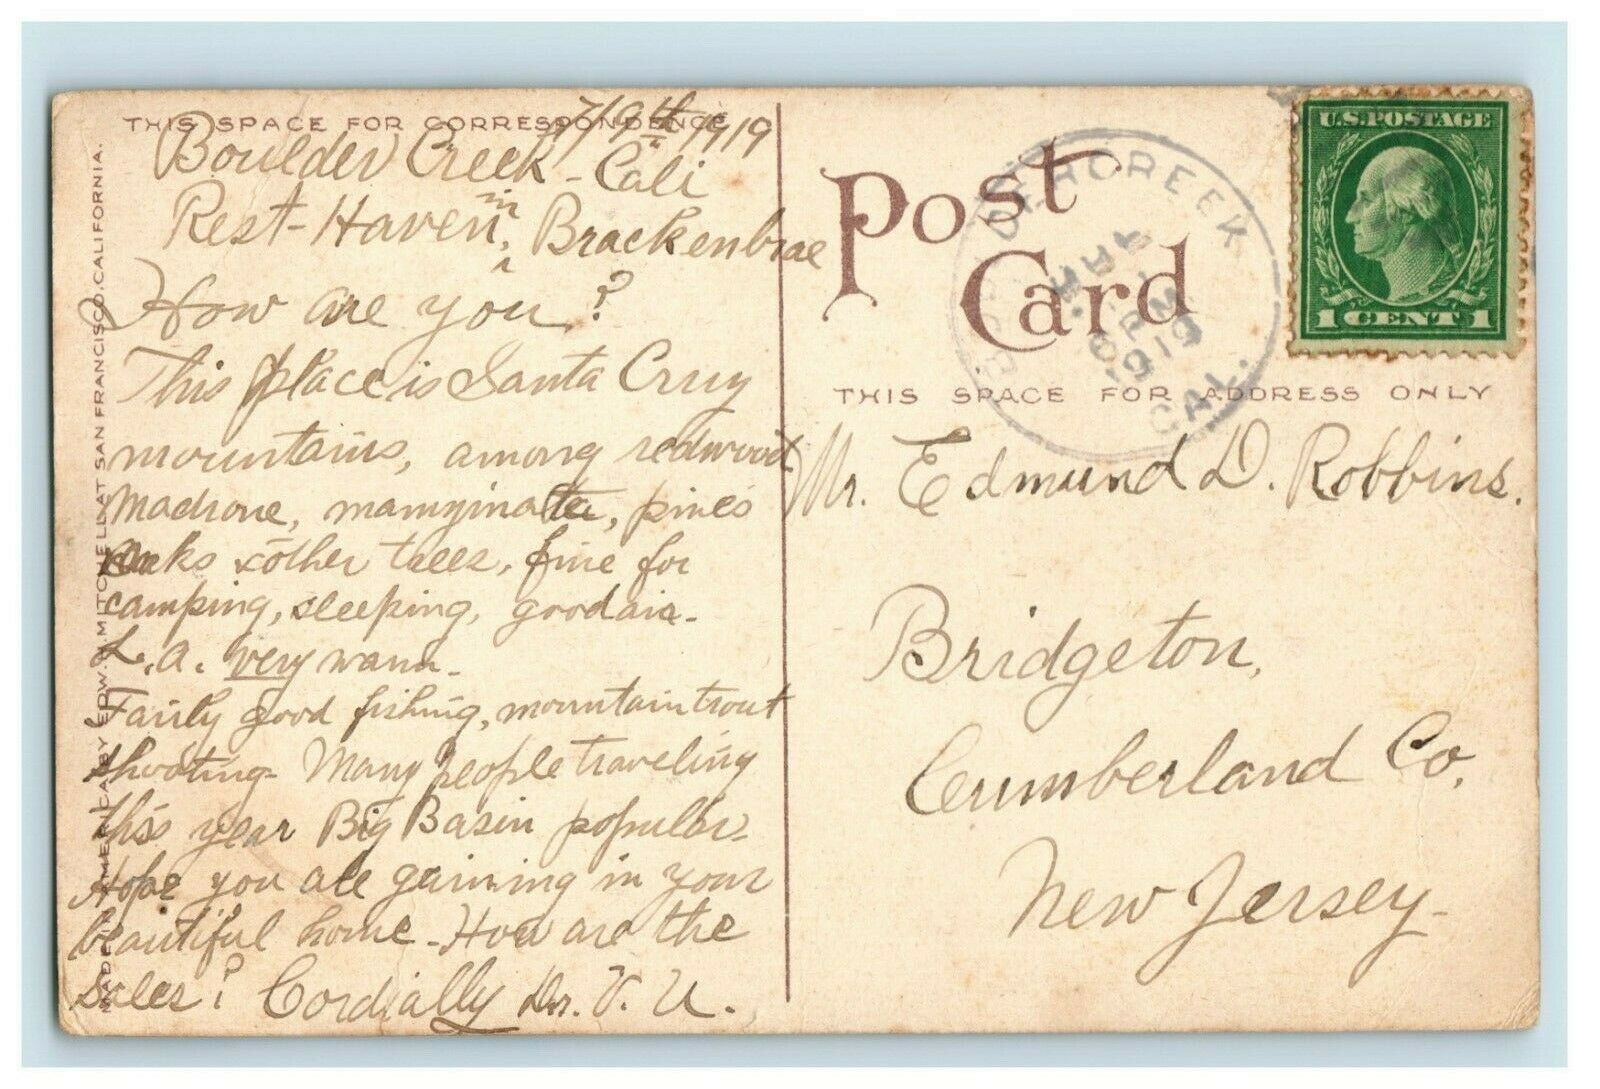 THIS SPACE FOR CORRESPONDENCE
7/9th 1919
Boulder Creek - Cali
Rest-Haven, in Brackenbrae
How are you?
This place is Santa Cruz
mountains, among redwood
Madrone, manzinata, pines
oaks & other trees, fine for
camping, sleeping, good air -
L.A. very warm -
Fairly good fishing, mountain trout
shooting - Many people traveling
this year Big Basin popular -
Hope you are gaining in your
beautiful home - How are the
sales? Cordially Dr. V. U.
MADE IN AMERICA BY EDW. H. MITCHELL AT SAN FRANCISCO, CALIFORNIA.
Post
Card
BOULDER CREEK
PM
1919
CAL.
U.S. POSTAGE
1 CENT 1
THIS SPACE FOR ADDRESS ONLY
Mr. Edmund D. Robbins.
Bridgeton,
Cumberland Co,
New Jersey -